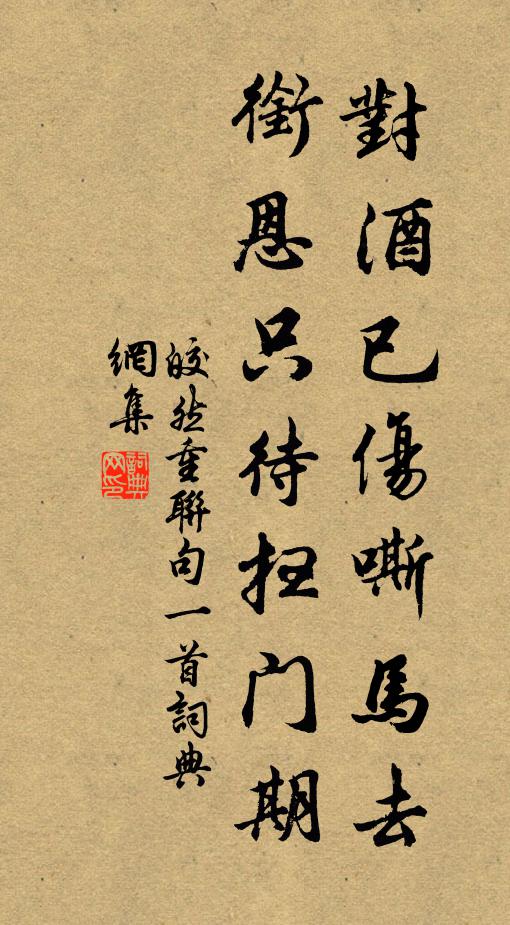 對酒已傷嘶馬去
銜恩只待掃門期
皎然重聯句一首詞典
網集
詞典
网印